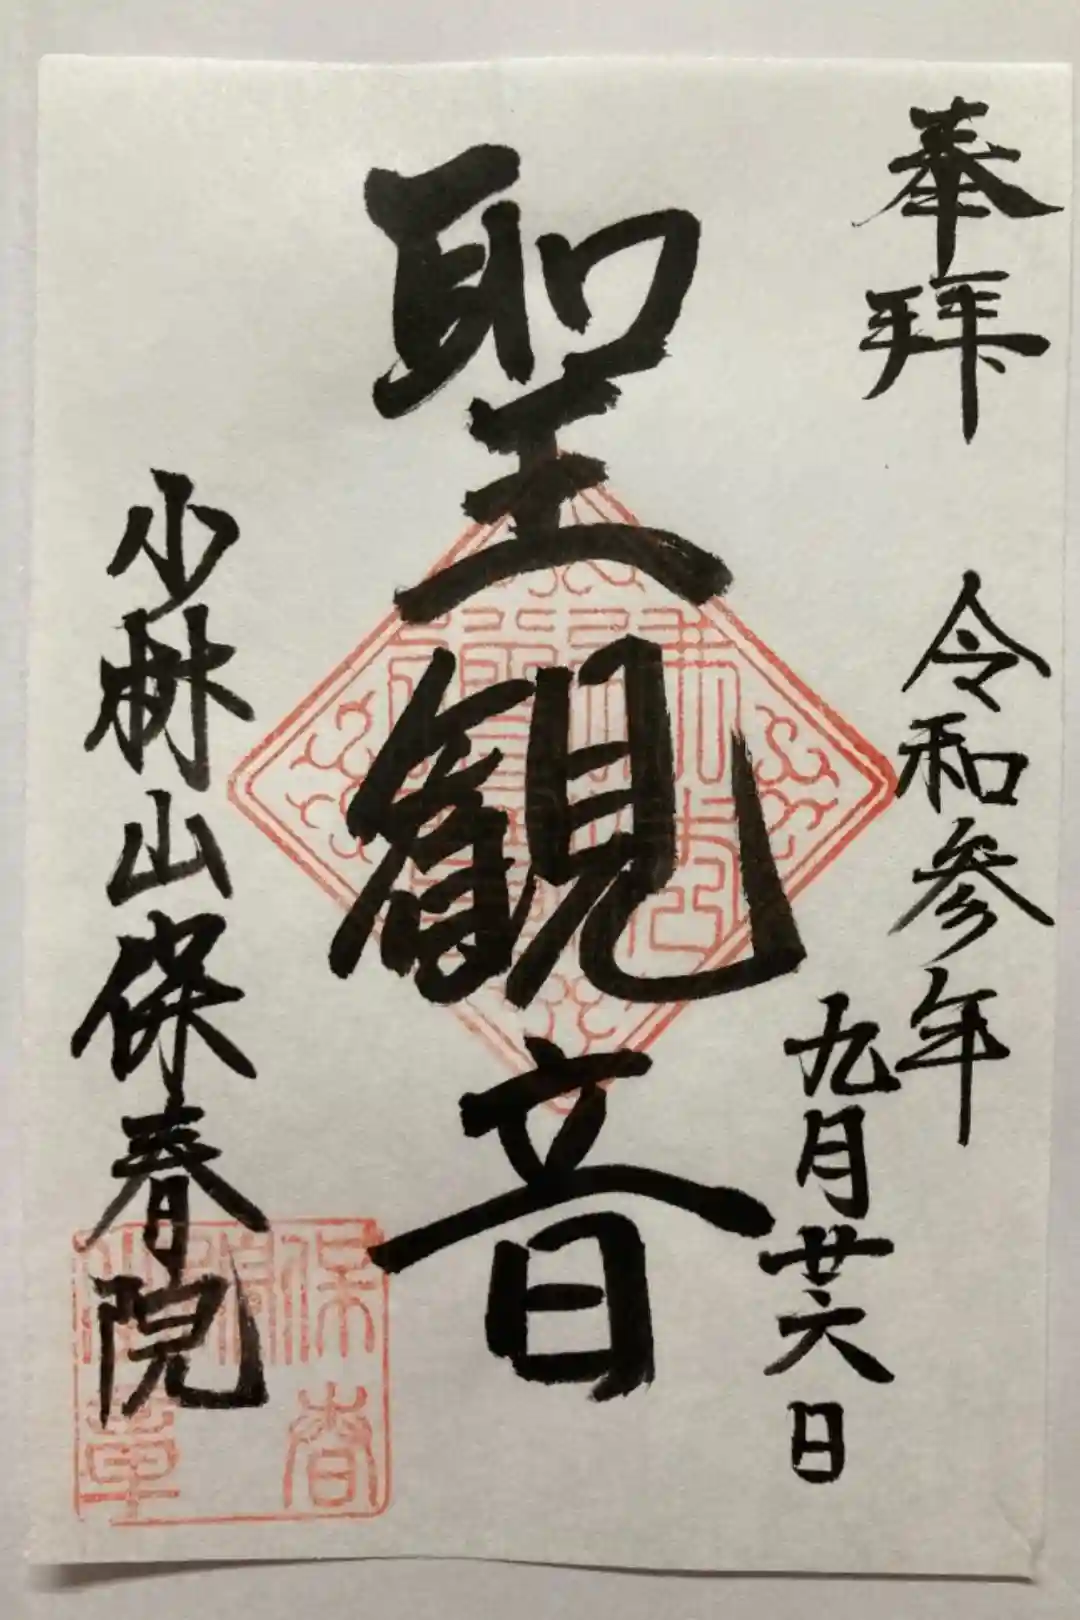 奉拝
令和参年
九月廿六日
聖観音
小林山保春院